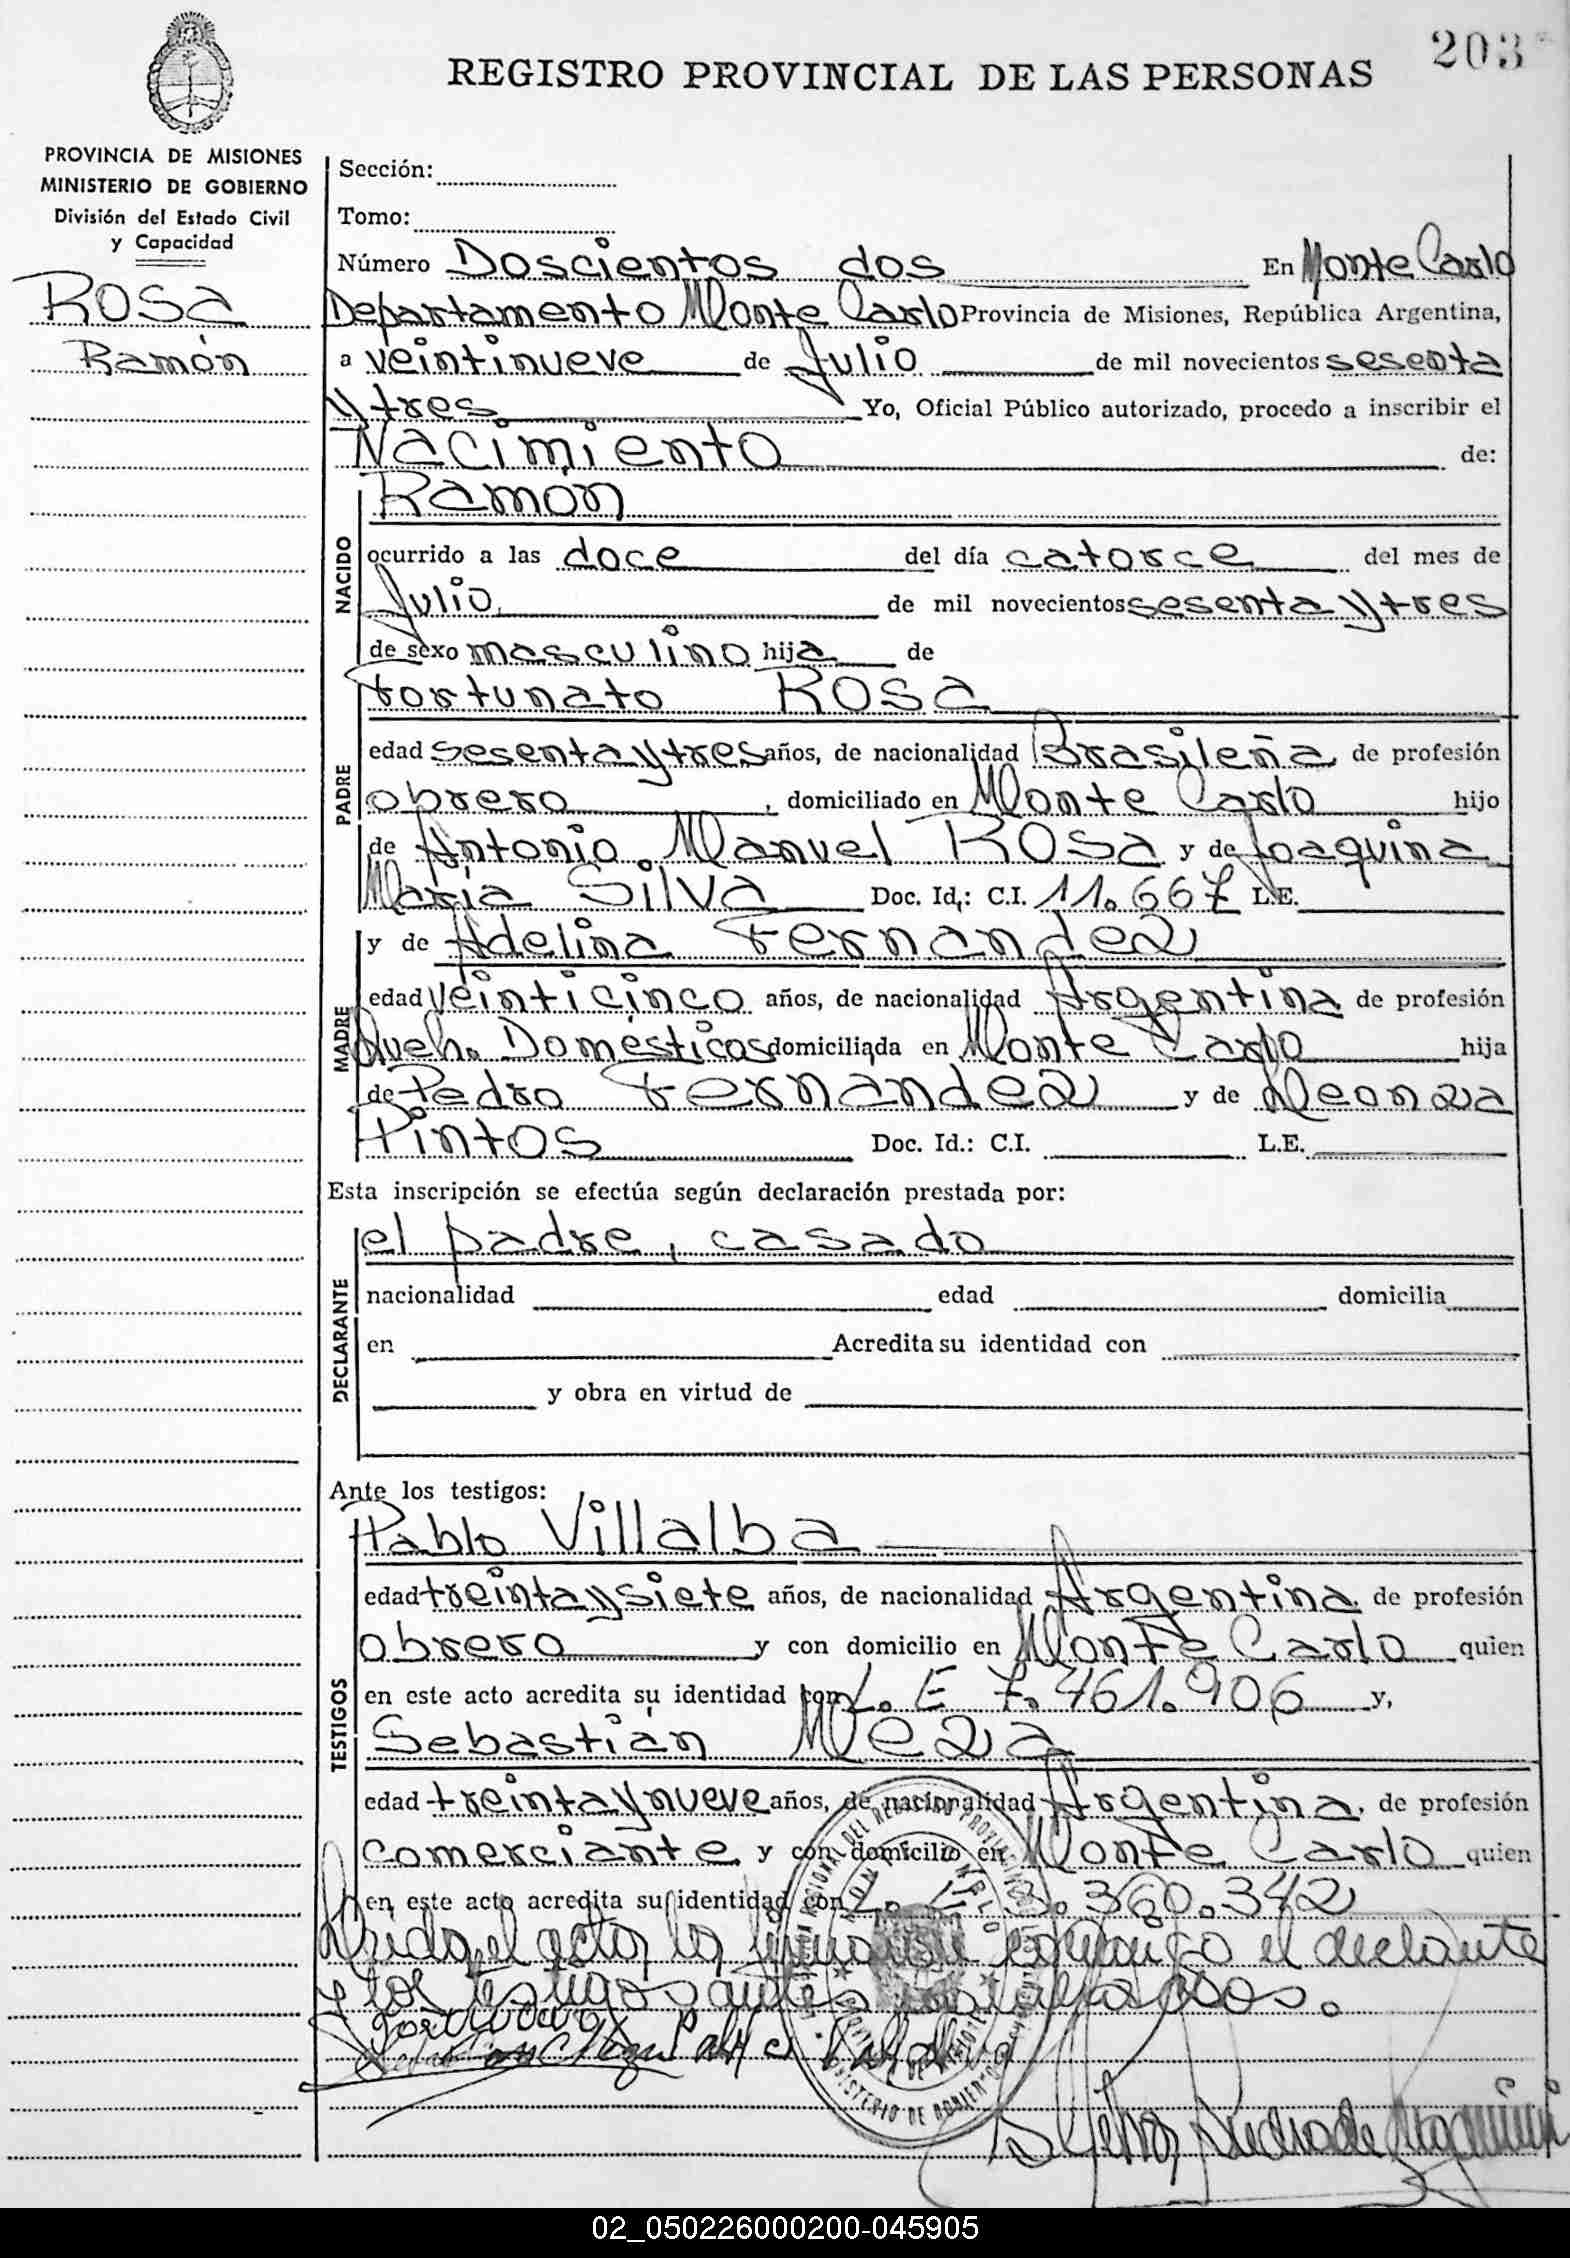 203
REGISTRO PROVINCIAL DE LAS PERSONAS
PROVINCIA DE MISIONES
MINISTERIO DE GOBIERNO
División del Estado Civil
y Capacidad
ROSA
Ramón
Sección:
Tomo:
Número Doscientos dos En Monte Carlo
Departamento Monte Carlo Provincia de Misiones, República Argentina,
a veintinueve de Julio de mil novecientos sesenta
y tres Yo, Oficial Público autorizado, procedo a inscribir el
Nacimiento de:
NACIDO
Ramón
ocurrido a las doce del día catorce del mes de
Julio de mil novecientos sesenta y tres
de sexo masculino hija de
Fortunato ROSA
PADRE
edad sesenta y tres años, de nacionalidad Brasileña de profesión
obrero, domiciliado en Monte Carlo hijo
de Antonio Manuel ROSA y de Joaquina
María Silva Doc. Id.: C.I. 11.667 L.E.
MADRE
y de Adelina Fernandez
edad veinticinco años, de nacionalidad Argentina de profesión
Queh. Domésticos domiciliada en Monte Carlo hija
de Pedro Fernandez y de Leonza
Pintos Doc. Id.: C.I. L.E.
Esta inscripción se efectúa según declaración prestada por:
DECLARANTE
el padre, casado
nacionalidad edad domicilia
en Acredita su identidad con
y obra en virtud de
Ante los testigos:
TESTIGOS
Pablo Villalba
edad treinta y siete años, de nacionalidad Argentina de profesión
obrero y con domicilio en Monte Carlo quien
en este acto acredita su identidad con L. E 7.461.906 y,
Sebastián Meza
edad treinta y nueve años, de nacionalidad Argentina, de profesión
comerciante y con domicilio en Monte Carlo quien
en este acto acredita su identidad con 3.360.342
Leida el acta, la firman conmigo el declante
y los testigos antes
02_050226000200-045905